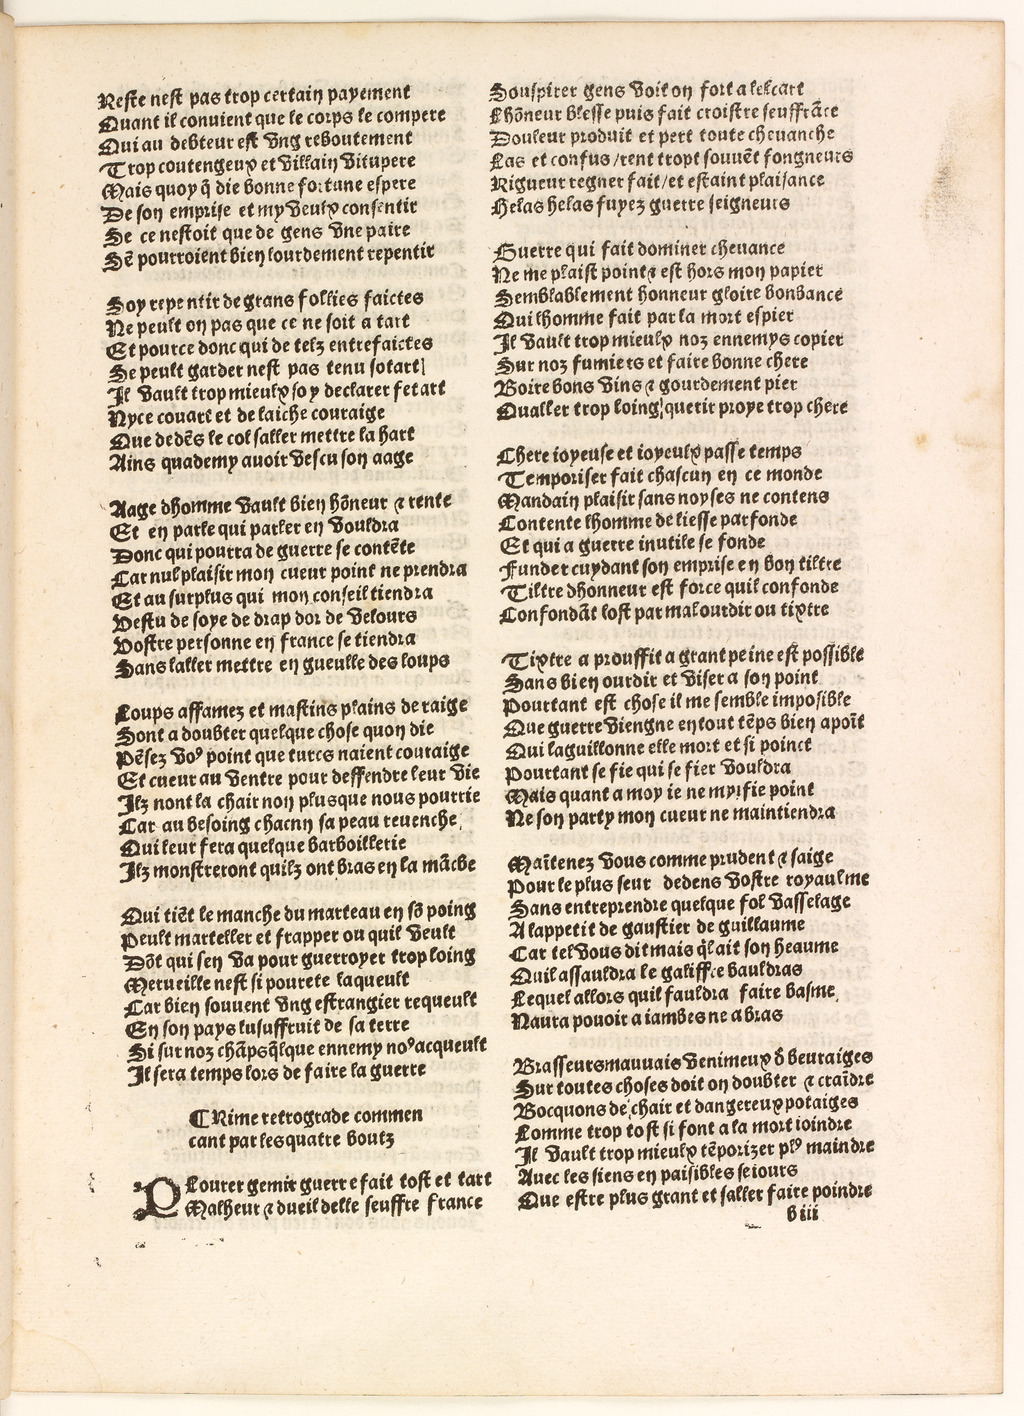 Reste nest pas trop certain payement
Quant il conuient que le corps le compere
Qui au debteur est vng reboutement
Trop coutengeux et villain vitupere
Mais quoy q̃ die bonne fortune espere
De son emprise et my veulx consentir
Se ce nestoit que de gens vne paire
Sẽ pourroient bien lourdement repentir

Soy repentir de grans follies faictes
Ne peult on pas que ce ne soit a tart
Et pource donc qui de telz entrefaictes
Se peult garder nest pas tenu sotart
Il vault trop mieulx soy declarer fetart
Nyce couart et de laiche couraige
Que dedẽs le col saller mettre la hart
Ains quademy auoir vescu son aage

Aage dhomme vault bien hõneur & rente
Et en parle qui parler en vouldra
Donc qui pourra de guerre se contẽte
Car nul plaisir mon cueur point ne prendra
Et au surplus qui mon conseil tiendra
Vestu de soye de drap dor de velours
Vostre personne en france se tiendra
Sans laller mettre en gueulle des loups

Loups affamez et mastins plains de raige
Sont a doubter quelque chose quon die
Pẽsez voꝰ point que turcs naient couraige
Et cueur au ventre pour deffendre leur vie
Ilz nont la chair non plus que nous pourrie
Car au besoing chacnn sa peau reuenche
Qui leur fera quelque barboillerie
Ilz monstreront quilz ont bras en la mãche

Qui tiẽt le manche du marteau en sõ poing
Peult marteller et frapper ou quil veult
Dõt qui sen va pour guerroyer trop loing
Merueille nest si pourete laqueult
Car bien souuent vng estrangier requeult
En son pays lusuffruit de sa terre
Si sur noz chãps q̃lque ennemy noꝰ acqueult
Il sera temps lors de faire la guerre

¶ Rime retrograde commen
cant par les quatre boutz

PLourer gemir guerre fait tost et tart
Malheur & dueil delle seuffre france
Souspirer gens voit on fort a lescart
Lhõneur blesse puis fait croistre seuffrãce
Douleur produit et pert toute cheuanche
Las et confus/rent tropt souuẽt songneurs
Rigueur regner fait/et estaint plaisance
Helas helas fuyez guerre seigneurs

Guerre qui fait dominer cheuance
Ne me plaist point & est hors mon papier
Semblablement honneur gloire bonbance
Qui lhomme fait par la mort espier
Il vault trop mieulx noz ennemys copier
Sur noz fumiers et faire bonne chere
Boire bons vins & gourdement pier
Qualler trop loing querir proye trop chere

Chere ioyeuse et ioyeulx passe temps
Temporiser fait chascun en ce monde
Mandain plaisir sans noyses ne contens
Contente lhomme de liesse parfonde
Et qui a guerre inutile se fonde
Funder cuydant son emprise en bon tiltre
Tiltre dhonneur est force quil confonde
Confondãt tost par mal ourdir ou tixtre

Tixtre a prouffit a grant peine est possible
Sans bien ourdir et viser a son point
Pourtant est chose il me semble imposible
Que guerre viengne en tout tẽps bien apoĩt
Qui laguillonne elle mort et si poinct
Pourtant se fie qui se fier vouldra
Mais quant a moy ie ne my fie point
Ne son party mon cueur ne maintiendra

Maĩtenez vous comme prudent & saige
Pour le plus seur dedens vostre royaulme
Sans entreprendre quelque fol vasselage
A lappetit de gaultier de guillaume
Car tel vous dit mais q̃l ait son heaume
Quil assauldra le galiffre bauldras
Lequel allors quil fauldra faire basme
Naura pouoir a iambes ne a bras

Brasseurs mauuais venimeux d̃ beuraiges
Sur toutes choses doit on doubter & craĩdre
Bocquons de chair et dangereux potaiges
Comme trop tost si font a la mort ioindre
Il vault trop mieulx tẽporizer plꝰ maindre
Auec les siens en paisibles seiours
Que estre plus grant et saller faire poindre
b iii